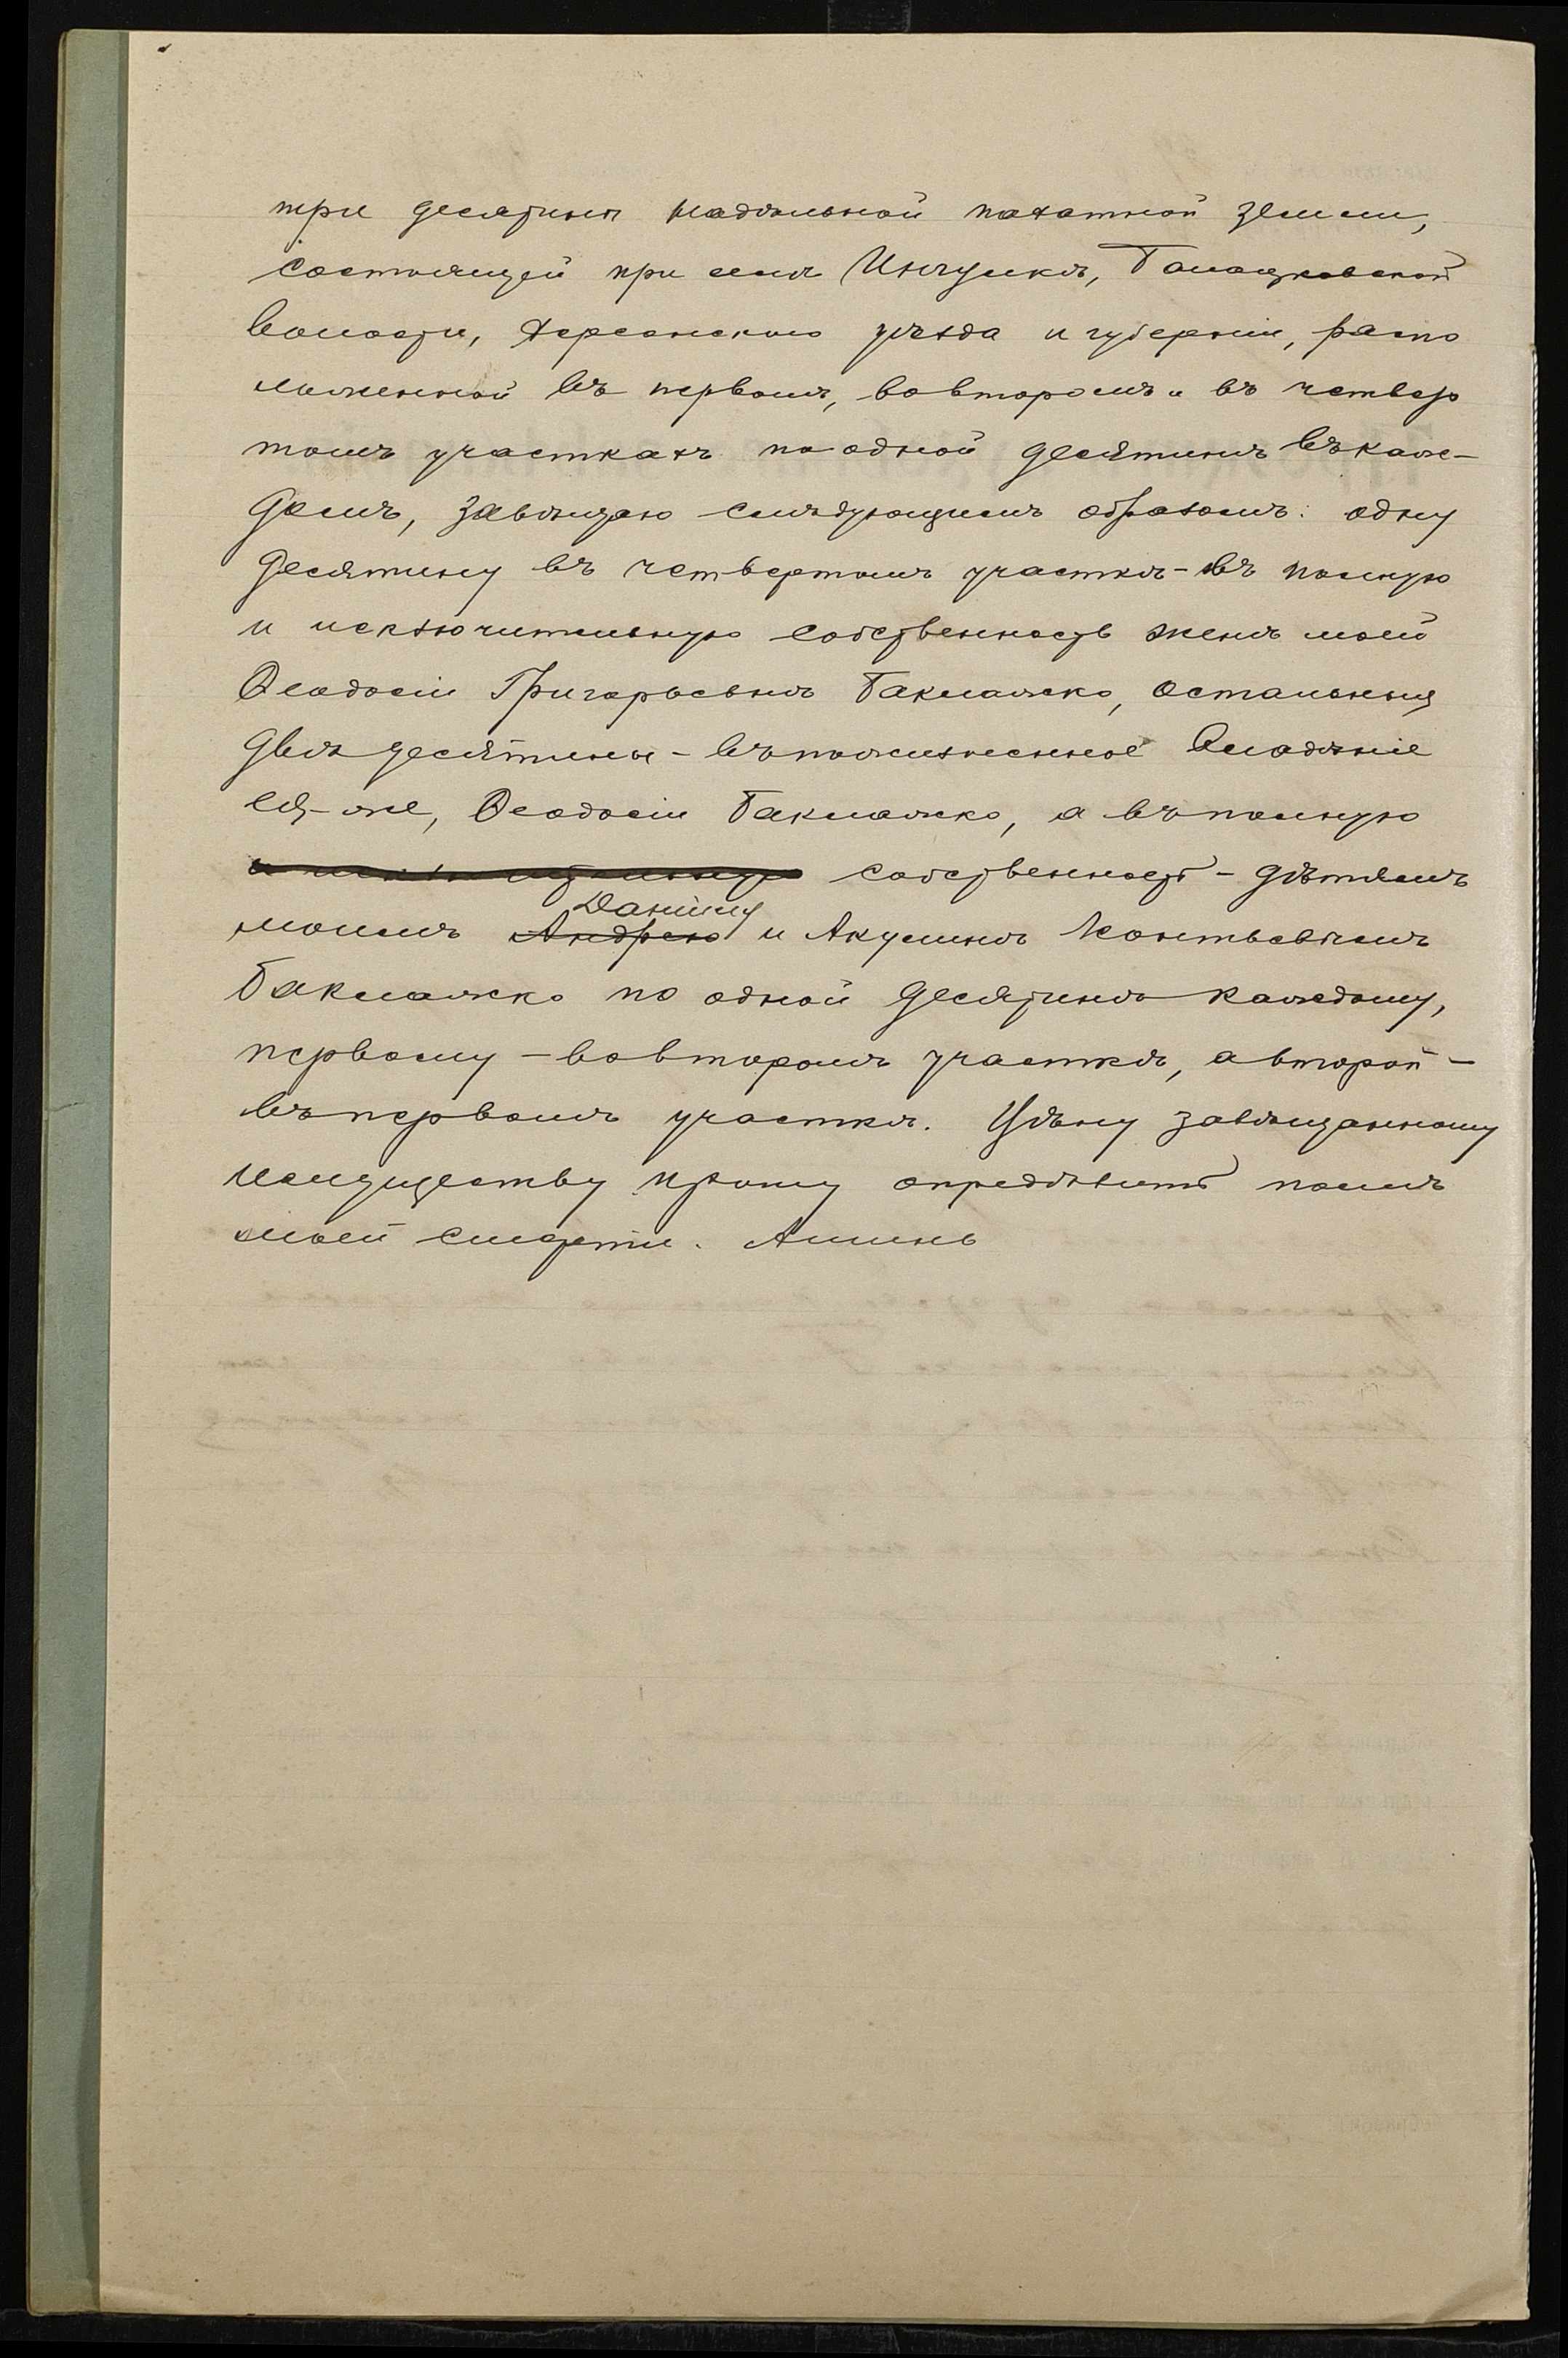 три десятины надѣльной пахатной земли,
состоящей при селѣ Ингулкѣ, Балацковской
волости, Херсонского уѣзда и губерніи, распо
ложенной въ первомъ, во второмъ и въ четвер
томъ участкахъ по одной десятинѣ въ каж-
домъ, завѣщаю слѣдующимъ образомъ: одну
десятину въ четвертомъ участкѣ - въ полную
и исключительную собственность женѣ моей
Ѳеодосіи Григорьевнѣ Баклажко, остальныя
двѣ десятины - въ пожизненное владѣніе
ея-же, Ѳеодосіи Баклажко, а въ полную
и исключительную собственность - дѣтямъ
Данилу
моимъ Андрею и Акулинѣ Контьевымъ
Баклажко по одной десятинѣ каждому,
первому - во второмъ участкѣ, а второй -
въ первомъ участкѣ. Цѣну завѣщанному
имуществу прошу опредѣлить послѣ
моей смерти. Аминь